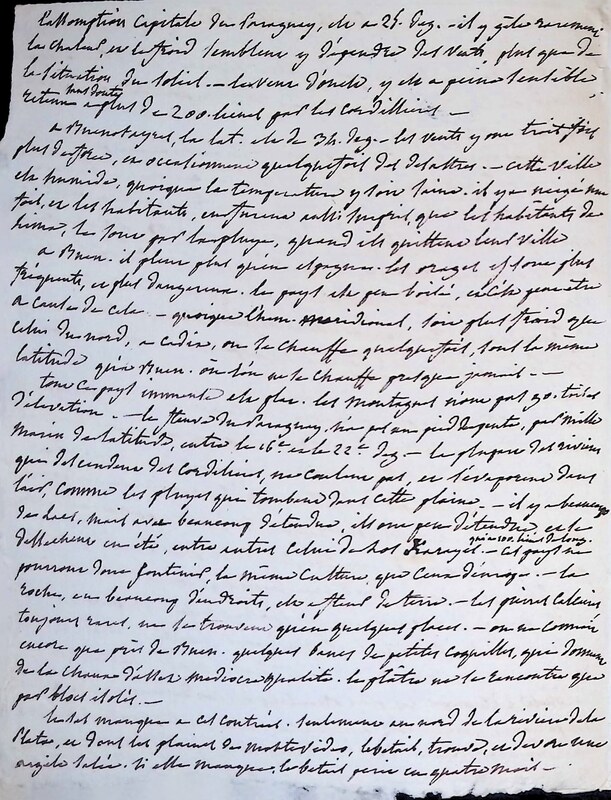 l'assomption Capitale du Paraguay, est a 25. deg. - il y gele rarement
la chaleur, et le froid semblent y dépendre des vents plus que de
la situation du soleil. - le vent d'ouest, y est a peine sensible
retenu sans doute a plus de 200. lieues par les Cordillieres -
a Buenos ayres, la lat. est de 34. deg. - les vents y ont trois fois
plus de force, et occasionnent quelquefois des desastres. - Cette Ville
est humide, quoique la température y soit saine. il y a neigé une
fois, et les habitants, en furent aussi surpris, que les habitants de
Lima, le sont par la pluye, quand ils quittent leur Ville
a Buen. il pleut plus qu'en espagne. les orages y sont plus
frequents, et plus dangereux. le pays est peu boisé, et c'est peut etre
a cause de cela - quoique l'hem. meridional, soit plus froid que
celui du nord, a Cadix, on se chauffe quelquefois, sous la même
latitude qu'a Buen. ou l'on ne se chauffe presque jamais. -
tout ce pays immense est plat. les montagnes n'ont pas 90. toises
d'élevation. - le fleuve du Paraguay, n'a pas un pied de pente, par mille
marin de latitude, entre le 16e et le 22e deg - la plupart des rivieres
qui descendent des Cordilieres, ne coulent pas, et s'évaporent dans
l'air, comme les pluyes qui tombent dans cette plaine. - il y a beaucoup
de lacs, mais avec beaucoup d'étendue, ils ont peu d'étendue et se
dessechent en été, entre autres celui de los Xarayes qui a 100. lieues de long. - Ces pays ne
pourront donc soutenir, la même culture, que ceux d'europe. - la
roche, en beaucoup d'endroits, est a fleur de terre. - les pierres calcaires
toujours rares, ne se trouvent qu'en quelques places. - on ne connait
encore que près de Buen. quelques bancs de petites coquilles, qui donnent
de la chaux d'assez mediocre qualité. le plâtre ne se rencontre que
par blocs isolés. -
le sel manque a ces contrées. seulement au nord de la riviere de la
Plata, et dans les plaines de montevideo, le betail, trouve, et devore une
argile salée. si elle manque, le betail perit en quatre mois. -